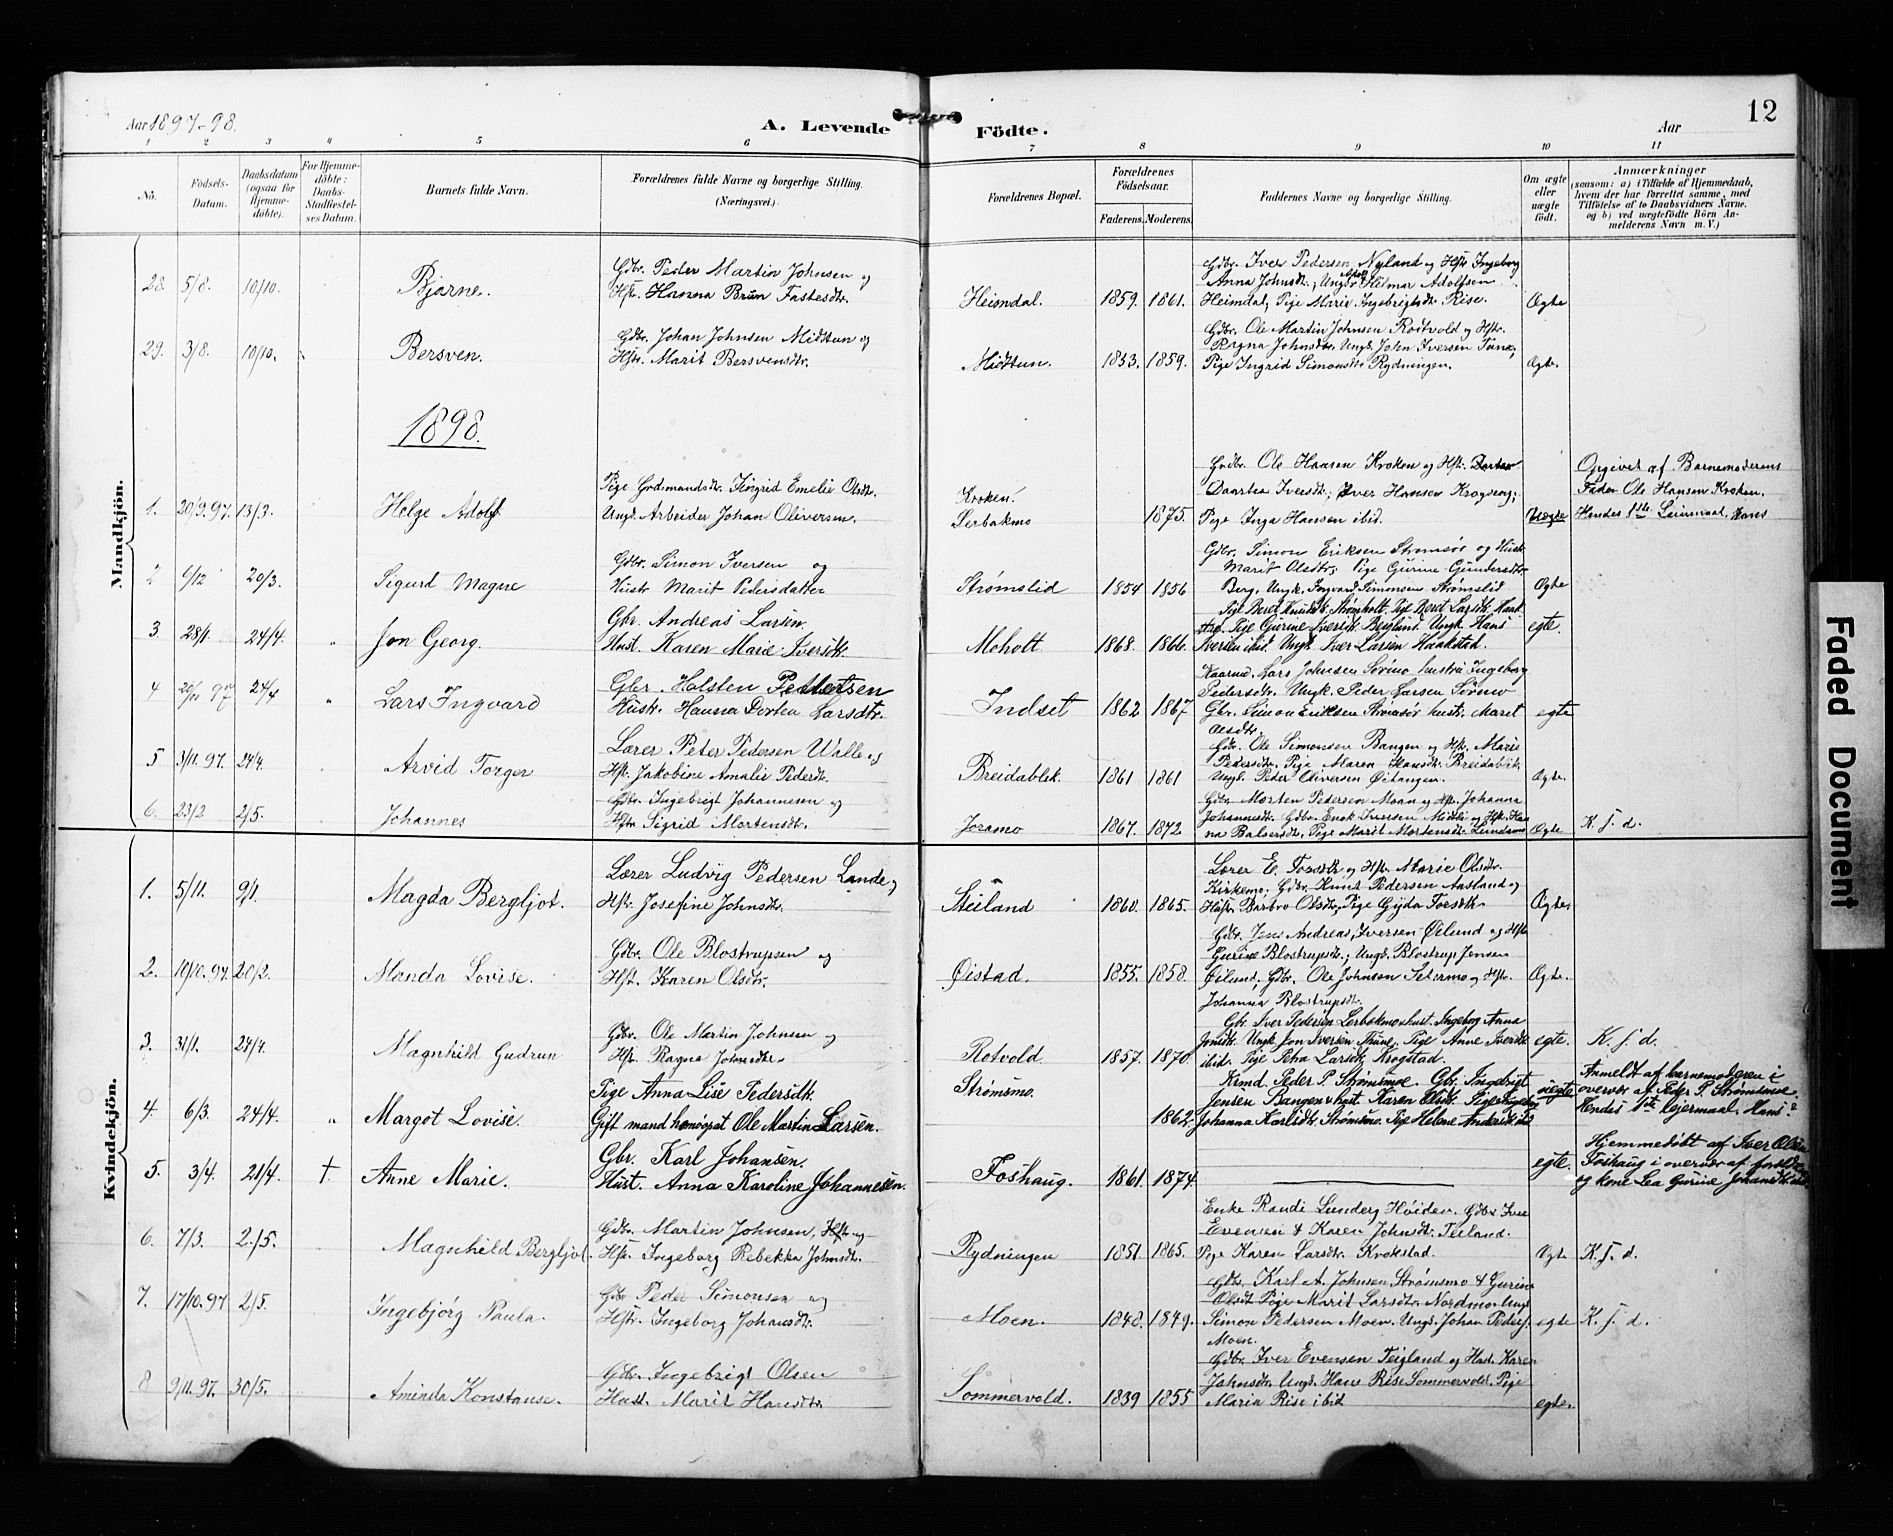 Aar 1897-98.
A. Levende Födte.
Aar
12
1 2 3 4 5 6 7 8 9 10 11
No.
Födsels-Datum.
Daabsdatum (ogsaa for Hjemme-döbte).
For Hjemme-döbte: Daabs-Stadfæstel-ses Datum.
Barnets fulde Navn.
Forældrenes fulde Navne og borgerlige Stilling. (Næringsvei.)
Forældrenes Bopæl.
Forældrenes Födselsaar.
Faderens. Moderens.
Faddernes Navne og borgerlige Stilling.
Om ægte eller uægte födt.
Anmærkninger
(saasom: a) i Tilfælde af Hjemmedaab, hvem der har forrettet samme, med Tilföielse af to Daabsvidners Navne. og b) ved uægtefödte Börn Anmelderens Navn m.V.)
Mandkjön.
28. 5/8. 10/10. Bjarne.
Gdbr. Peder Martin Johnsen og
Hst. Hanna Brun Fastesdtr.
Heimdal. 1859. 1861.
Gdbr. Iver Pedersen Nyland og Hstr Ingeborg
Anna Johnsdtr, Ungkr Hilmar Adolfsen
Heimdal, Pige Marie Ingebrigtsdtr. Rise.
Ægte
29. 3/8. 10/10. Bersven.
Gdbr. Johan Johnsen Midtun og
Hstr. Marit Bersvensdtr.
Midtun. 1853. 1859.
Gdbr. Ole Martin Johnsen Rodtvold og Hstr.
Ragna Johnsdtr. Ungk. John Iversen Tune,
Pige Ingrid Simonsdtr Rydningen.
Ægte.
1898.
1. 20/9.97. 13/3. Helge Adolf
Pige Grdmandsdtr. Ingrid Emelie Olsdtr.
Ungk. Arbeider Johan Oliversen.
Kroken.
Lerbakmo 1875.
Grdbr. Ole Hansen Kroken og Hst.
Daartea Iversdtr, Iver Hansen Krogseng,
Pige Inga Hansen ibid.
Uægte
Opgivet af Barnemoderens
Fader Ole Hansen Kroken.
Hendes 1ste Leiermaal. Hans
2 6/12 20/3. Sigurd Magne
Gdbr. Simon Iversen og
Hustr Marit Pedersdatter
Strømslid 1854 1856
Gdbr. Simon Eriksen Strømsør og Hust
Marit Olsdtr, Pige Gurine Gundersdtr
Berg, Ungk. Ingvard Simonsen Strømslid
Ægte
3. 28/1. 24/4. " Jon Georg.
Gbr. Andreas Larsen.
Hust. Karen Marie Iversdtr.
Moholt 1868. 1866.
Pige Berit Knudsdtr. Strømholt. Pige Berit Larsdtr. Haak
stad. Pige Gurine Iversdtr. Berglund. Ungk. Hans
Iversen ibid. Ungk. Iver Larsen Haakstad.
egte.
4 20/11 97 24/4 " Lars Ingvard
Gbr. Halsten Pettersen
Hustr. Hanna Dortea Larsdtr.
Indset 1862 1867
Kaarmd. Lars Johnsen Sørmo hustru Ingeborg
Pedersdtr. Ungk. Peder Larsen Sørmo
Gbr. Simon Eriksen Strømsør hustr. Maret
Olsdtr.
egte
5 3/11.97. 24/4. Arvid Torger
Lærer Peter Pedersen Walle og
Hst. Jakobine Amalie Pedersdtr.
Breidablik. 1861 1861
Gdbr. Ole Simonsen Bangen og Hst. Marie
Pedersdtr. Pige Maren Hansdtr. Breidablik
Ungk. Peder Oliversen Øitangen.
Ægte.
6. 23/2 2/5. Johannes
Gdbr. Ingebrigt Johannesen og
Hstr Sigrid Mortensdtr.
Joramo 1867. 1872
Gdbr. Morten Pedersen Moan og Hst. Johanna
Johannsdtr. Gdbr. Enok Iversen Midtli og Hst. Han
na Balsersdtr, Pige Marit Mortensdtr. Lundamo
Ægte
K. f. d.
Kvindekjön.
1. 5/11. 9/1. Magda Bergljot.
Lærer Ludvig Pedersen Lande og
Hst. Josefine Johnsdtr.
Steiland 1860. 1865.
Lærer E. Torsdtr og Hstr Marie Olsdtr.
Kirkemo. Gdbr. Knut Pedersen Aasland og
Hustr Barbro Olsdtr, Pige Gyda Torsdtr.
Ægte
2. 10/10.97. 20/2. Manda Lovise.
Gdbr. Ole Blostrupsen og
Hst. Karen Olsdtr.
Øistad. 1855. 1858.
Gdbr. Jens Andreas Iversen Øilund og Hstr
Gurine Blostrupsdtr, Ungk. Blostrup Jensen
Øilund, Gdbr. Ole Johnsen Setermo og Hstr.
Johanna Blostrupsdtr.
Ægte.
3. 31/1. 24/4. Magnhild Gudrun
Gdbr. Ole Martin Johnsen og
Hst. Ragna Johnsdtr.
Rotvold 1857. 1870.
Gbr. Iver Pedersen Lerbakmo hust. Ingeborg Anna
Jonsdtr. Ungk Jon Iversen Thune, Pige Anne Iversdtr
ibid. Pige Petra Larsdtr. Krogstad.
egte.
K. f. d.
4. 6/3. 24/4. " Margot Lovise.
Pige Anna Lise Pedersdtr.
Gift mand Ole Martin Larsen.
Strømsmo. 1862.
Kmd. Peder P. Strømsmoe. Gbr. Ingebrigt
Jensen Bangen hust Karen Olsdtr. Pige Ingeborg
Johanna Karlsdtr. Strømsmo. Pige Helene Andersdtr ibid
uegte
Anmeldt af barnemoderen i
overvær af Peder P. Strømsmoe.
Hendes 1ste lejermaal. Hans 2
5. 3/4. 24/4. † Anne Marie.
Gbr. Karl Johansen.
Hust. Anna Karoline Johannesen.
Foshaug. 1861. 1874.
egte.
Hjemmedøbt af Iver Olsen
Foshaug i overvær af
og kone Lea Gurine Johansdtr ibid
6. 7/3. 2/5. Magnhild Bergljot.
Gdbr. Martin Johnsen, Hst og
Hst. Ingeborg Rebekka Johnsdtr.
Rydningen 1851 1865.
Enke Randi Lunderg Høiden. Gdbr Iver
Evensen & Karen Johnsdtr. Teiland.
Pige Karen Larsdtr. Krokstad.
Ægte
K. f. d.
7. 17/10.97 2/5. Ingebjörg Paula.
Gdbr Peder Simonsen og
Hstr. Ingeborg Johansdtr.
Moen. 1848. 1849.
Gdbr. Karl A. Johnsen Strømsmo & Gurine
Olsdtr Pige Marit Larsdtr. Nordmo. Ungk
Simon Pedersen Moen. Ungk. Johan Peders.
Moen.
egte
K. f. d.
8 9/11.97. 30/5. Aminda Konstanse.
Gdbr. Ingebrigt Olsen
Hust. Marit Hansdtr
Sommervold. 1839 1855
Gdbr. Iver Evensen Teigland og Hust. Karen
Johnsdtr. Ungk. Hans Rise Sommervold. Pige
Maria Rise ibid
egte.
Faded Document